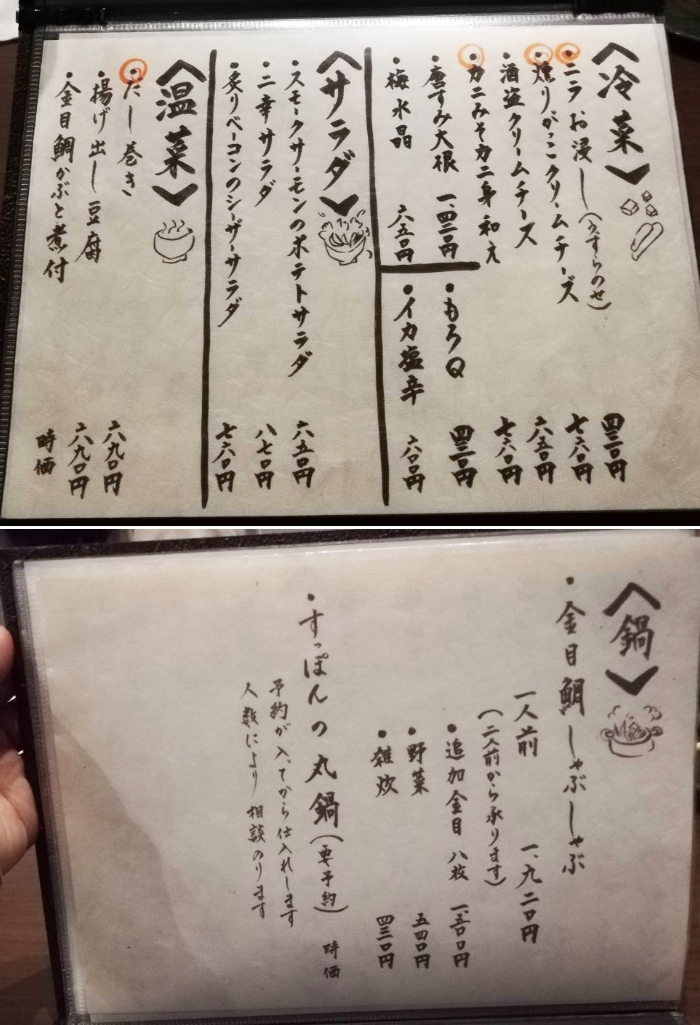 〈冷菜〉
・ニラお浸し(うずらのせ) 四三〇円
・燻りがっこクリームチーズ 七六〇円
・酒盗クリームチーズ 六五〇円
・カニみそカニ身和え 七六〇円
・唐すみ大根 一、四三〇円
・梅水晶 六五〇円
・もろQ 四三〇円
・イカ塩辛 六〇〇円
〈サラダ〉
・スモークサーモンのポテトサラダ 六五〇円
・二幸サラダ 八七〇円
・炙りベーコンのシーザーサラダ 七六〇円
〈温菜〉
・だし巻き 六九〇円
・揚げ出し豆腐 六九〇円
・金目鯛かぶと煮付 時価
〈鍋〉
・金目鯛しゃぶしゃぶ
一人前 一、九二〇円
(二人前から承ります)
・追加金目 八枚
・野菜 五四〇円
・雑炊 四三〇円
・すっぽんの丸鍋(要予約) 時価
予約が入ってから仕入れします
人数により相談のります